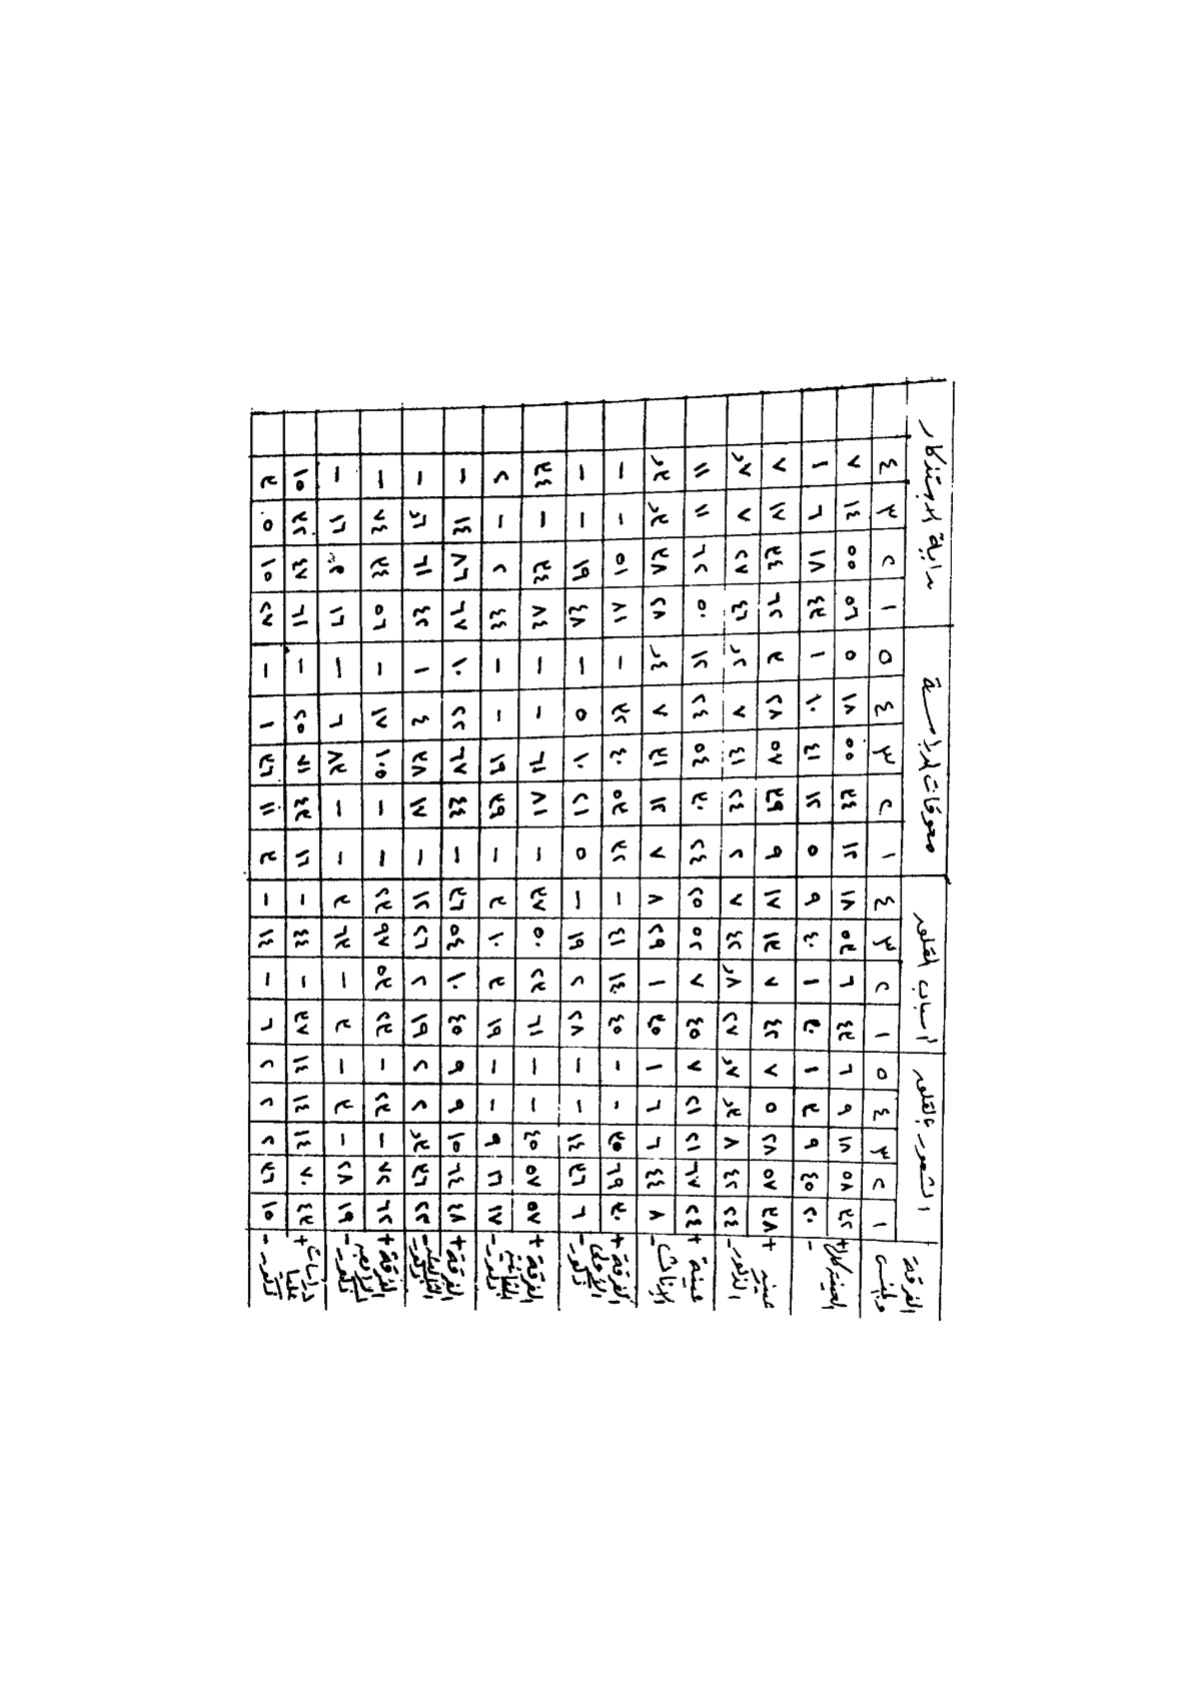 الفرقة والجنس الشعور بالقلق أسباب القلق معوقات الدراسة بداية الاستذكار
١ ٢ ٣ ٤ ٥ ١ ٢ ٣ ٤ ١ ٢ ٣ ٤ ٥ ١ ٢ ٣ ٤
العينة ككل + ٣٢ ٥٨ ١٨ ٩ ٦ ٤٣ ٦ ٥٣ ١٨ ١٢ ٣٤ ٥٥ ١٨ ٥ ٥٦ ٥٥ ١٤ ٧
- ٢٠ ٤٥ ٩ ٣ ١ ٣٠ ١ ٤٠ ٩ ٥ ١٢ ٤١ ١٠ ١ ٤٣ ١٨ ٦ ١
عينة الذكور + ٣٨ ٥٧ ٢٨ ٥ ٧ ٤٢ ٧ ١٢ ١٧ ٩ ٣٩ ٥٧ ٢٨ ٣ ٦٢ ٣٤ ١٧ ٧
- ٢٤ ٤٢ ٨ ٣ر ٧ر ٢٧ ٨ر ٤٢ ٧ ٢ ٢٤ ٤١ ٧ ٢ر ٤٦ ٢٧ ٧ ٧ر
عينة الإناث + ٢٤ ٦٧ ٢١ ٢١ ٧ ٤٥ ٧ ٥٢ ٢٥ ٢٤ ٣٠ ٥٤ ٢٤ ١٢ ٥٠ ٦٢ ١١ ١١
- ٨ ٤٤ ٦ ٦ ١ ٣٥ ١ ٢٩ ٨ ٧ ١٢ ٣١ ٧ ٤ر ٢٨ ٣٨ ٣ر ٣ر
الفرقة الأولى + ٣٠ ٦٩ ٣٥ - - ٤٥ ١٤ ٤١ - ٣٢ ٥٣ ٤٠ ٣٢ - ٨١ ٥١ - -
ذكور - ٦ ٣٦ ١٤ - - ٢٨ ٢ ١٩ - ٥ ٢١ ١٠ ٥ - ٤٨ ١٩ - -
الفرقة الثانية + ٥٧ ٥٧ ٤٥ - - ٦١ ٢٣ ٥٠ ٣٧ - ٨١ ٦١ - - ٨٤ ٣٤ - ٣٤
ذكور - ١٧ ٢٦ ٩ - - ١٩ ٣ ١٠ ٣ - ٣٩ ١٩ - - ٤٤ ٢ - ٢
الفرقة الثالثة + ٤٨ ٦٤ ١٥ ٩ ٩ ٤٥ ١٠ ٥٤ ٣٦ - ٤٤ ٦٧ ٢٢ ١٠ ٦٧ ٨٦ ١٤ -
ذكور - ٢٣ ٣٦ ٣ر ٢ ٢ ١٩ ٢ ٢٦ ١٢ - ١٧ ٣٨ ٤ ١ ٤٢ ٦١ ٦ر -
الفرقة الرابعة + ٦٢ ٧٢ - ٢٣ - ٢٣ ٥٣ ٩٧ ٢٣ - - ١٠٥ ١٧ - ٥٦ ٣٤ ٧٤ -
ذكور - ١٩ ٢٨ - ٣ - ٣ - ٦٣ ٣ - - ٨٣ ٦ - ١٦ ١٦ -
دراسات عليا + ٤٣ ٧٠ ١٤ ١٤ ١٤ ٣٧ - ٤٤ - ١٦ ٤٣ ٧١ ٢٥ - ٦١ ٤٧ ٣٢ ١٥
ذكور - ١٥ ٣٦ ٢ ٢ ٢ ٦ - ١٤ - ٣ ١١ ٣٦ ١ - ٢٧ ١٥ ٥ ٣